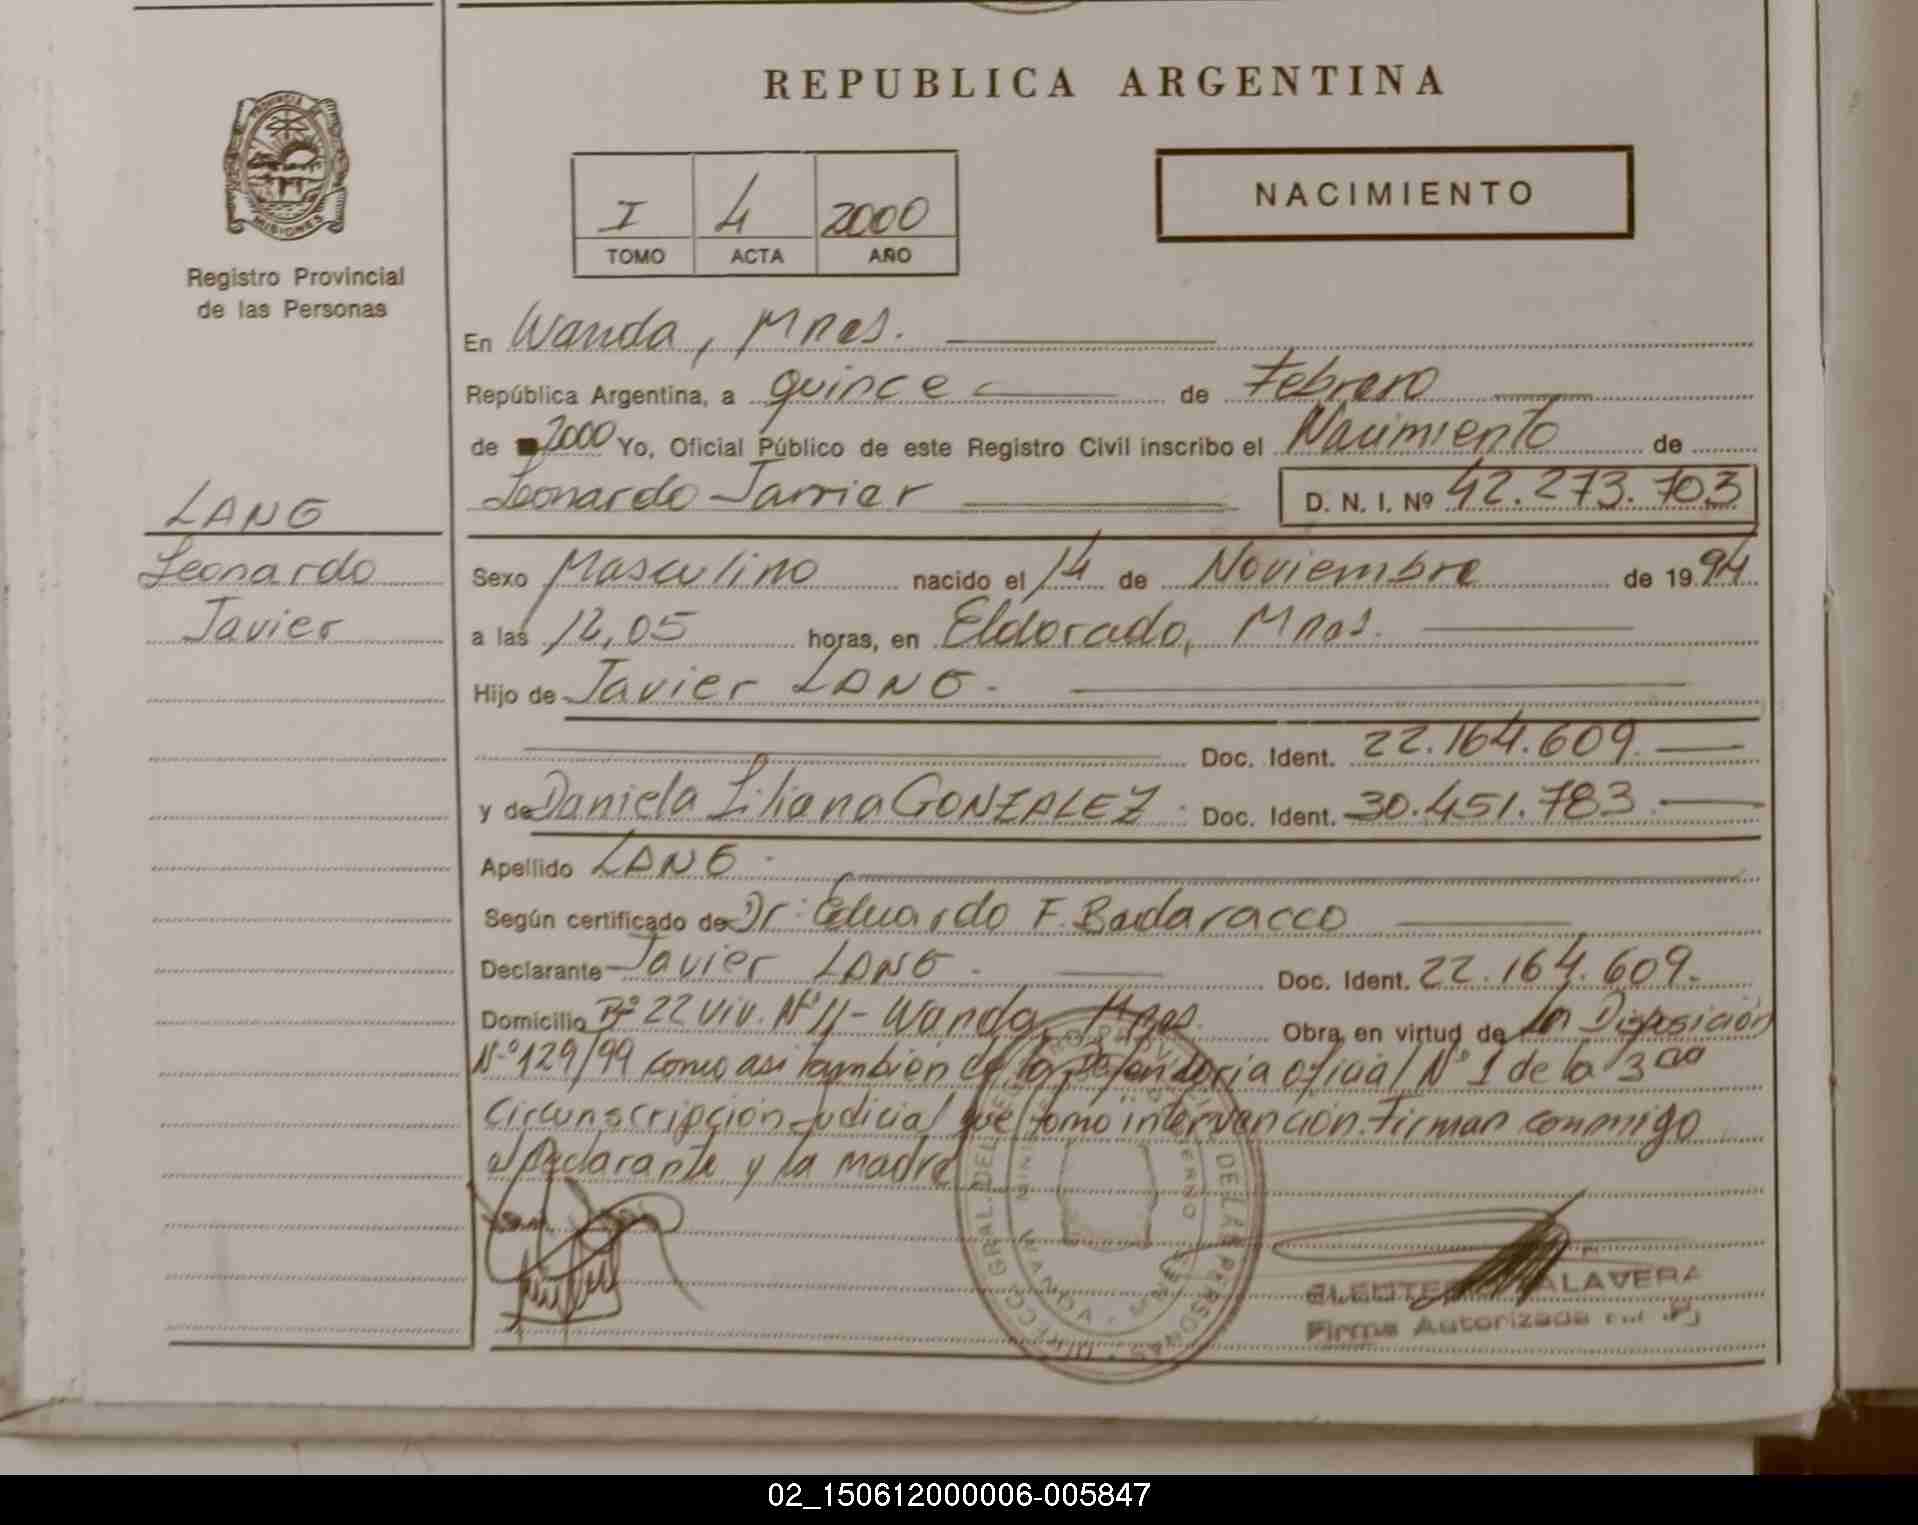 REPUBLICA ARGENTINA
I 4 2000
TOMO ACTA AÑO
NACIMIENTO
PROVINCIA DE MISIONES
Registro Provincial
de las Personas
LANG
Leonardo
Javier
En Wanda, Mnes.
República Argentina, a quince de Febrero
de 2000 Yo, Oficial Público de este Registro Civil inscribo el Nacimiento de
Leonardo Javier D. N. I. Nº 42.273.703
Sexo Masculino nacido el 14 de Noviembre de 1994
a las 12,05 horas, en Eldorado, Mnes.
Hijo de Javier LANG.
Doc. Ident. 22.164.609.
y de Daniela Liliana GONZALEZ. Doc. Ident. 30.451.783
Apellido LANG.
Según certificado de Dr: Eduardo F. Badaracco
Declarante Javier LANG. Doc. Ident. 22.164.609.
Domicilio Bº 22 Viv. Nº 11 - Wanda, Mnes. Obra en virtud de la Disposición
N.º 129/99 como asi tambien de la Defensoria oficial Nº 1 de la 3era
Circunscripción Judicial que tomo intervención. Firman conmigo
el Declarante y la madre
WANDA - MNES
DE LAS PERSONAS
TALAVERA
Firma Autorizada
02_150612000006-005847